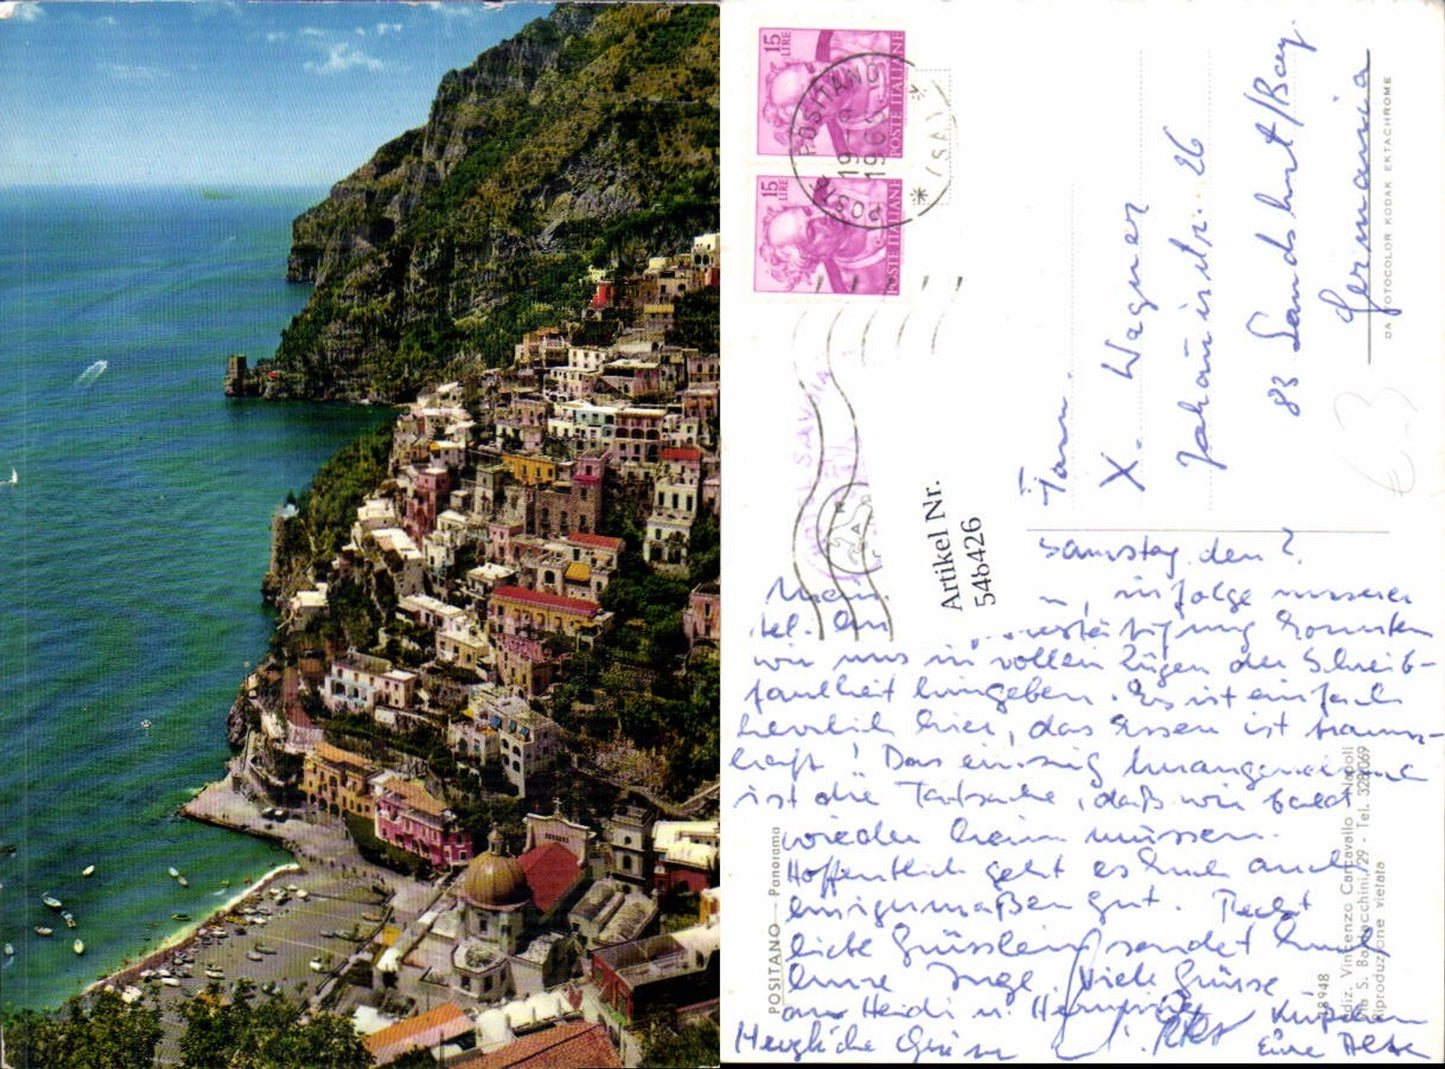 15
LIRE
POSTE ITALIANE
15
LIRE
POSTE ITALIANE
POSTE POSITANO
19
196
(SA)
Artikel Nr.
546426
Fam.
X. Wagner
Johannisstr. 26
83 Landshut/Bay.
Germania
DA FOTOCOLOR KODAK EKTACHROME
€ 3
Samstag, den 2.
infolge unserer
tel. konnten
wir uns in vollen Zügen der Schreib-
faulheit hingeben. Es ist einfach
herrlich hier, das Essen ist traum-
haft! Das einzig
ist die Tatsache, daß wir bald
wieder heim müssen.
Hoffentlich geht es Euch auch
einigermaßen gut. Recht
liebe Grüsslein sendet Euch
Eure Inge. Viele Grüsse
an Heidi u.
Herzliche Grüße
Eure
POSITANO - Panorama
18948
Ediz. Vincenzo Carcavallo - Napoli
Via S. Baldacchini, 29 - Tel. 328069
Riproduzione vietata